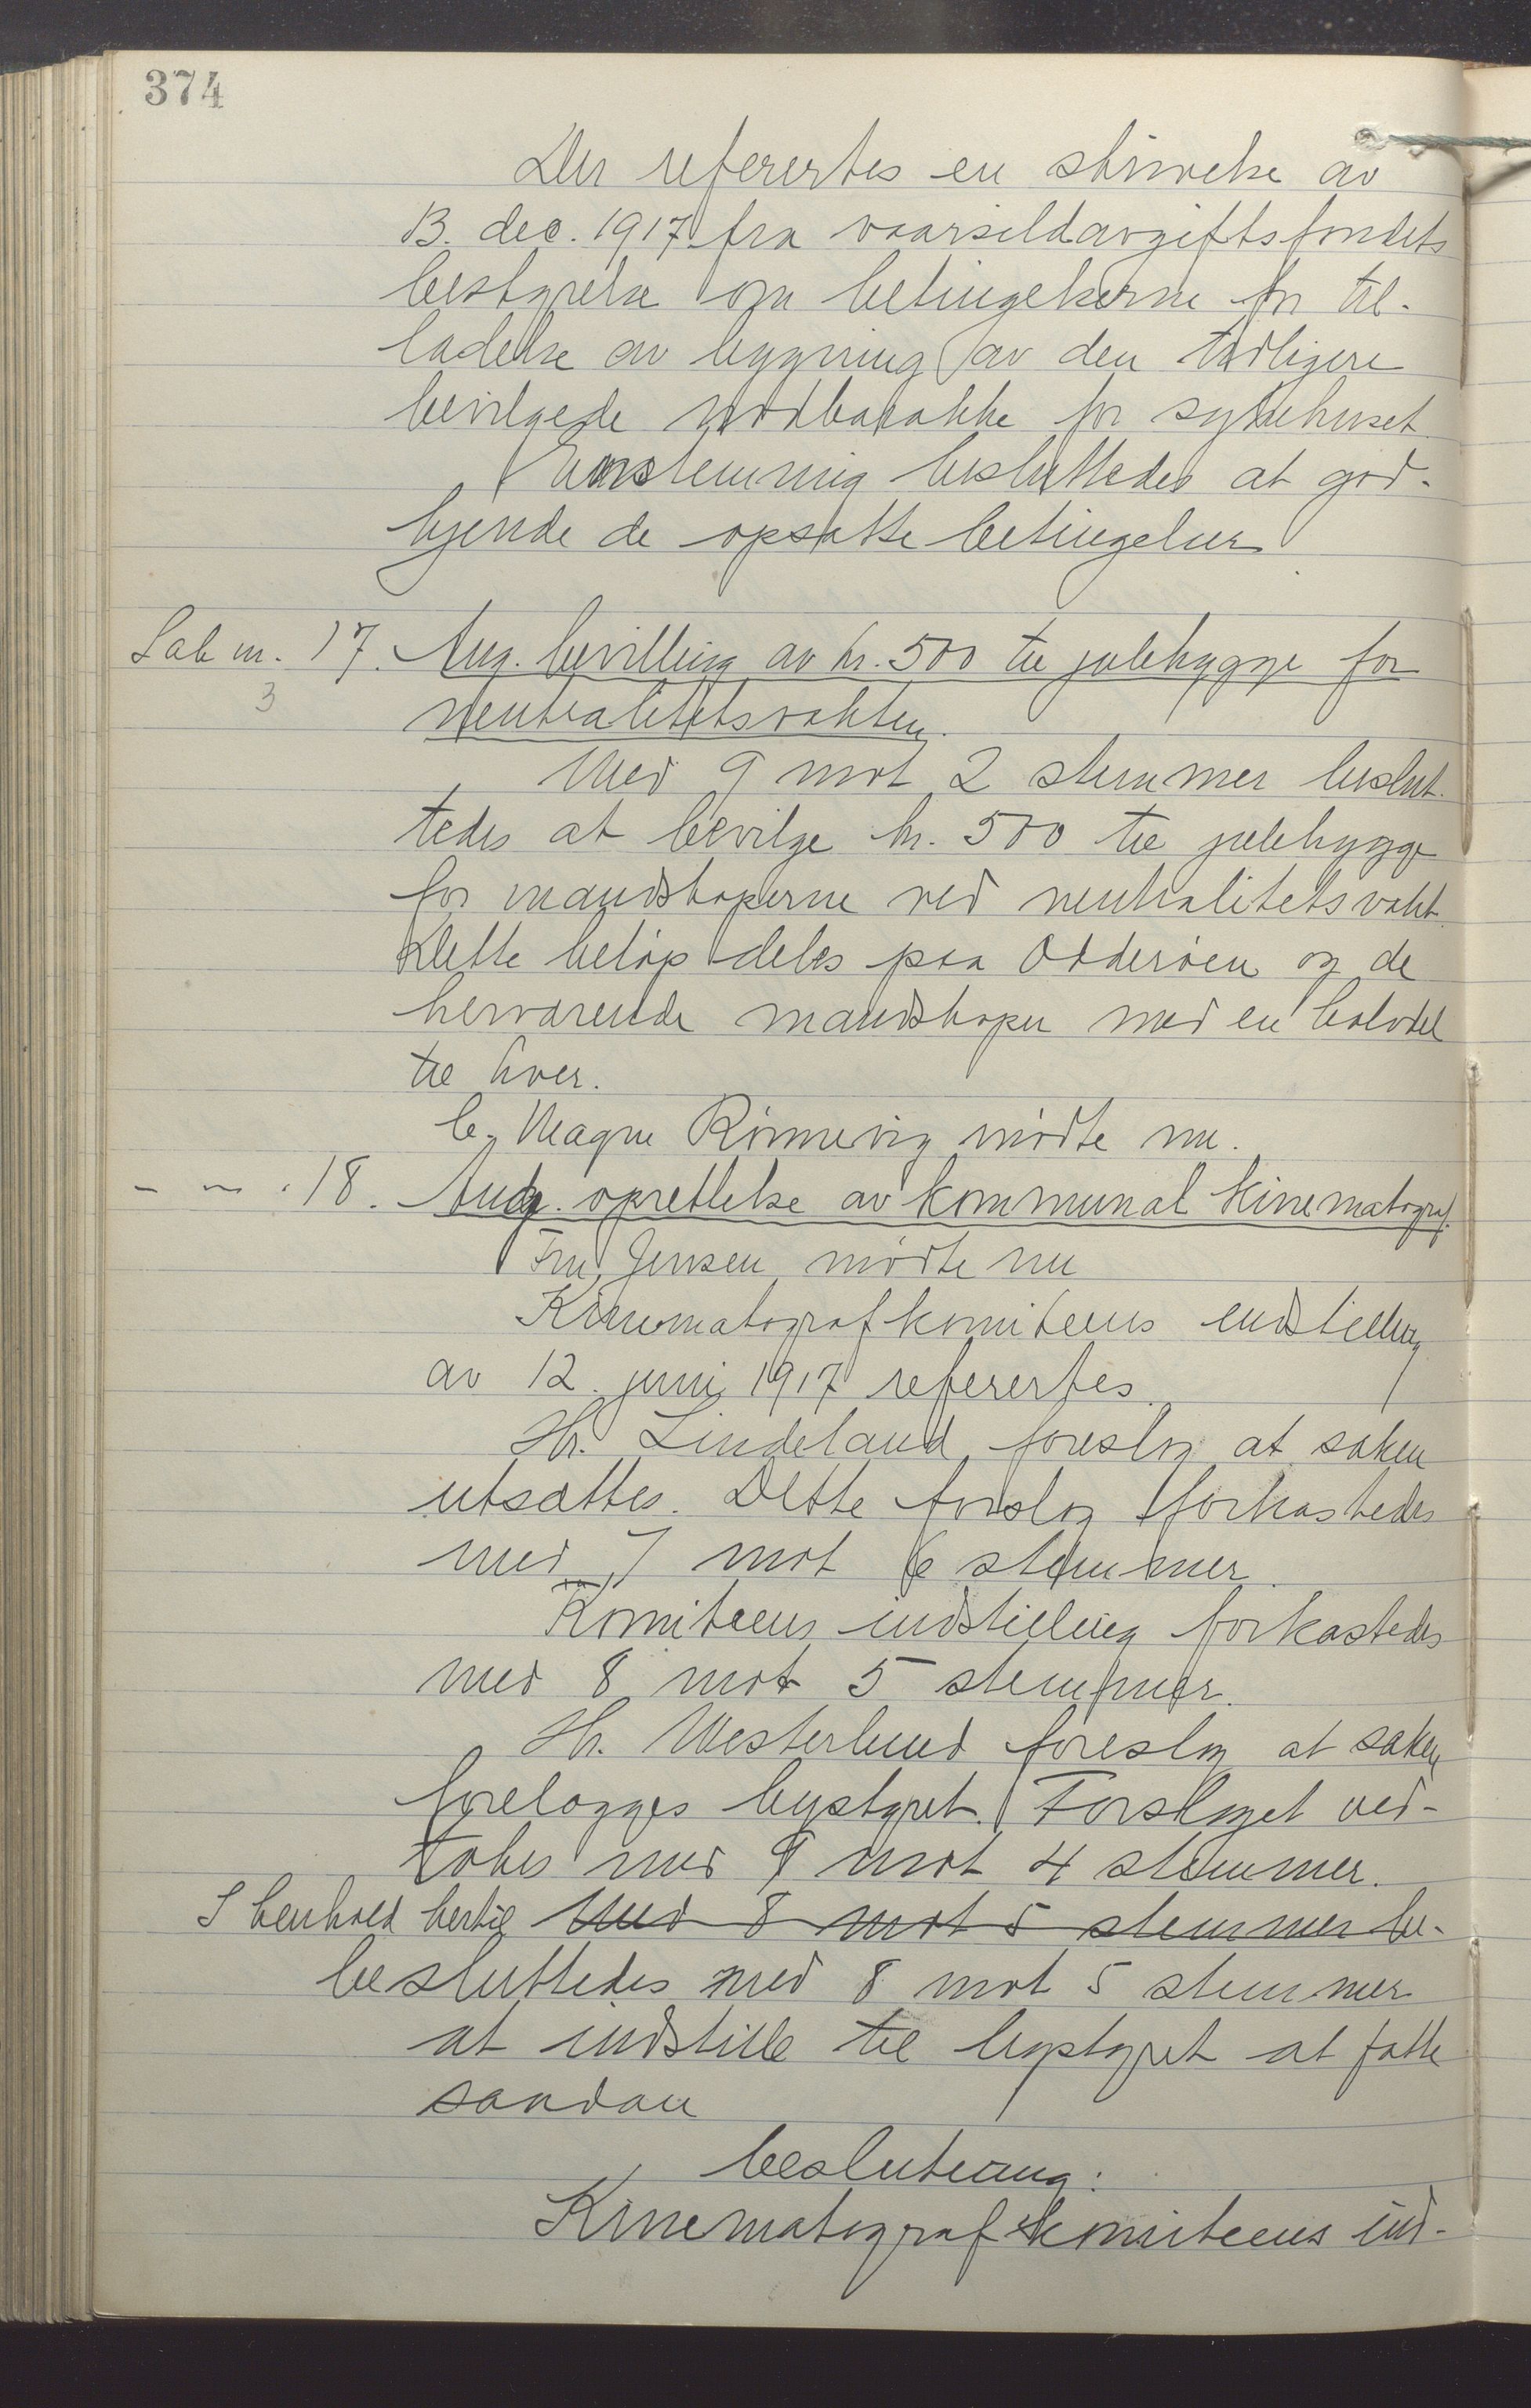 374
Der referertes en skrivelse av
13. dec. 1917 fra vaarsildavgiftsfondets
bestyrelse om betingelserne for til-
ladelse av bygning av den tidligere
bevilgede nødbarakke for sykehuset
Enstemmig besluttedes at god-
kjende de opsatte betingelser
Sak nr. 17. Ang. bevilling av kr. 500 til julehygge for
3
neutralitetsvakten.
Med 9 mot 2 stemmer beslut-
tedes at bevilge kr. 500 til julehygge
for mandskaperne ved neutralitetsvakt.
Dette beløp deles paa Odderøen og de
herværende mandskaper med en halvdel
til hver.
C. Magne Rönnevig mødte nu.
- " - 18. Ang. oprettelse av kommunal kinematograf.
Fru Jensen mødte nu
Kinematografkomiteens indstilling
av 12. juni 1917 referertes.
Hr. Lindeland foreslog at saken
utsattes. Dette forslag forkastedes
med 7 mot 6 stemmer.
Komiteens indstilling forkastedes
med 8 mot 5 stemmer.
Hr. Westerlund foreslog at saken
forelægges bystyret. Forslaget ved-
tokes med 9 mot 4 stemmer.
I henhold hertil Med 8 mot 5 stemmer be-
besluttedes med 8 mot 5 stemmer
at indstille til bystyret at fatte
saadan
beslutning:
Kinematografkomiteens ind-